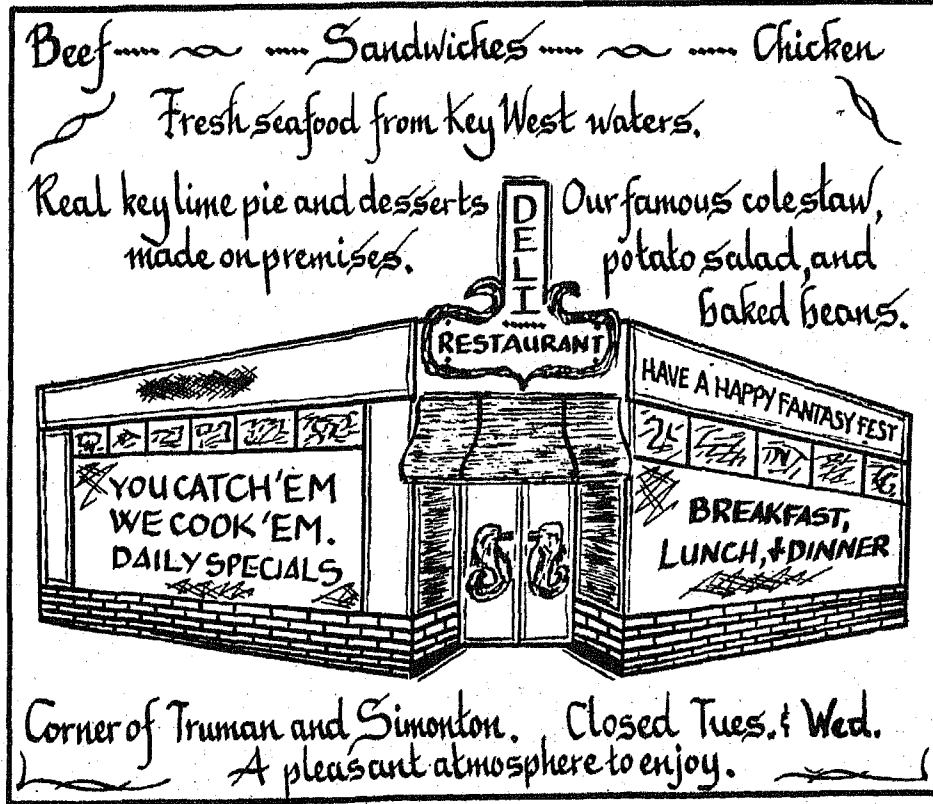 Beef Sandwiches Chicken
Fresh seafood from Key West waters.
Real key lime pie and desserts
made on premises.
Our famous coleslaw,
potato salad, and
baked beans.
DELI
RESTAURANT
HAVE A HAPPY FANTASY FEST
YOU CATCH 'EM
WE COOK 'EM.
DAILY SPECIALS
BREAKFAST,
LUNCH, & DINNER
Corner of Truman and Simonton. Closed Tues. & Wed.
A pleasant atmosphere to enjoy.